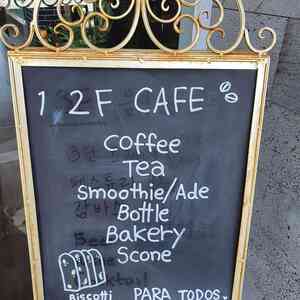 1 2F CAFE
Coffee
Tea
Smoothie/Ade
Bottle
Bakery
Scone
Biscotti PARA TODOS.